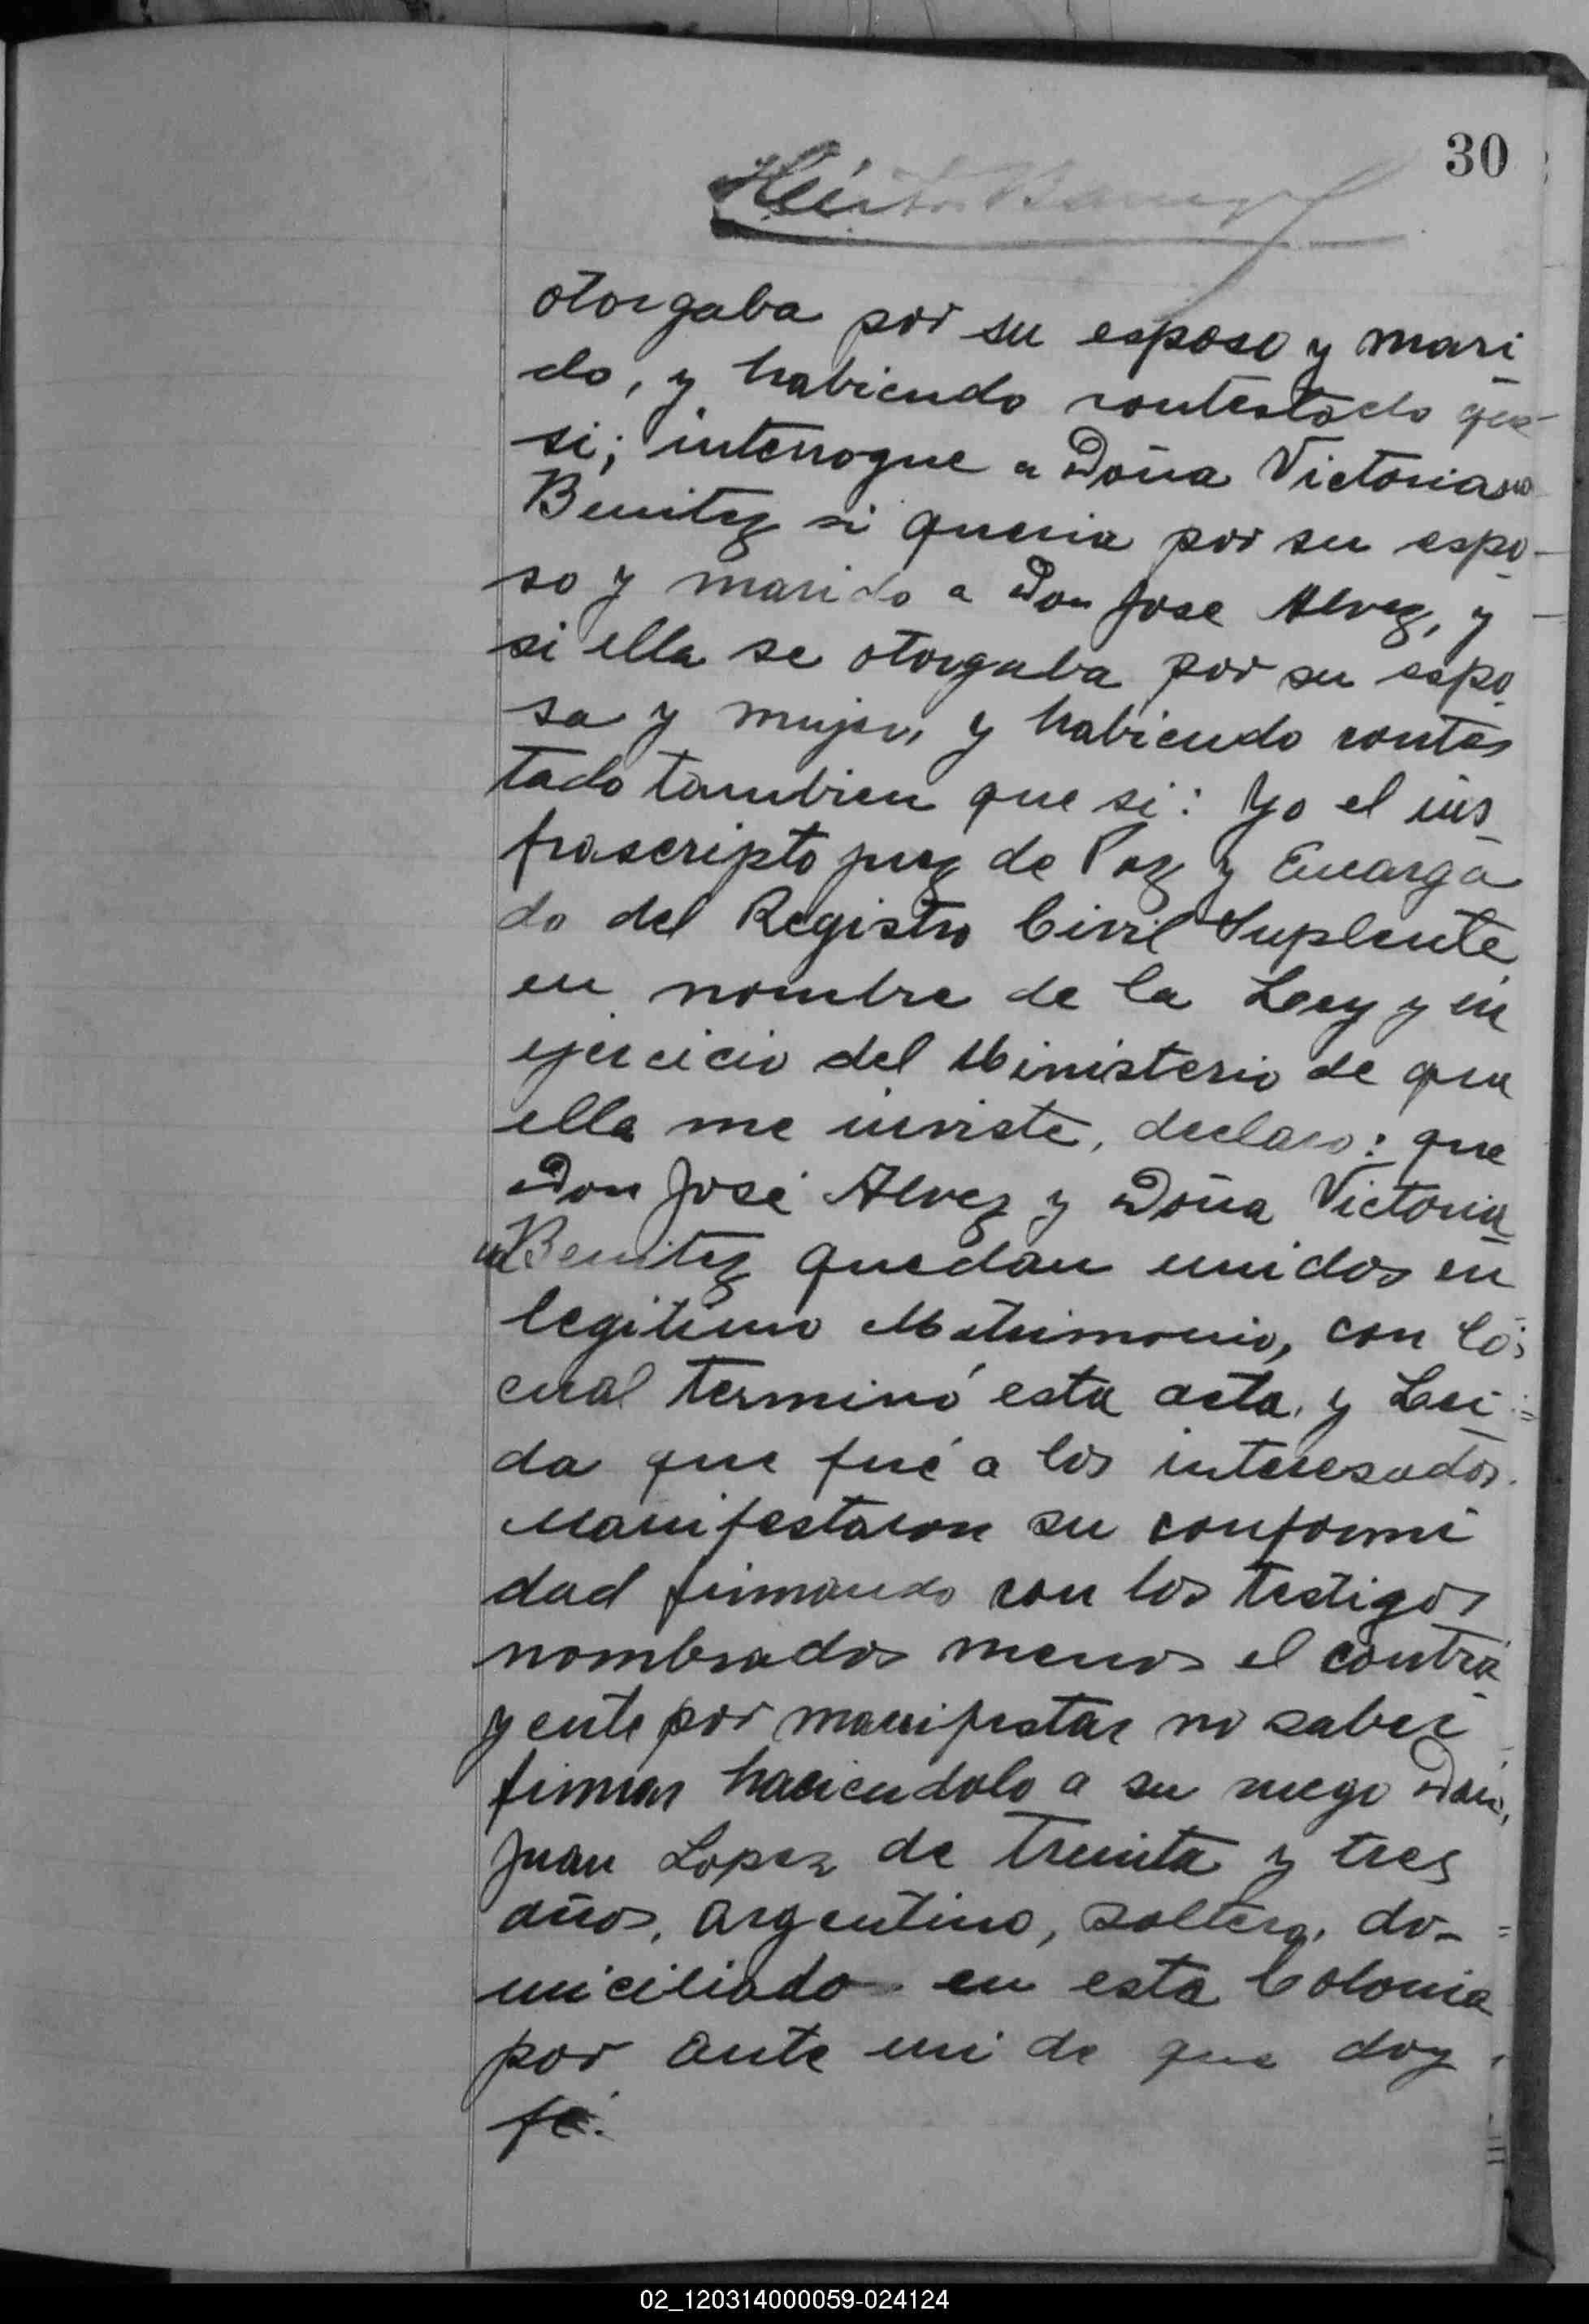 30
otorgaba por su esposo y mari
do, y habiendo contestado que
si; interrogue a Doña Victoriana
Benitez si queria por su espo-
so y marido a Don Jose Alvez, y
si ella se otorgaba por su espo
sa y mujer, y habiendo contes
tado tambien que si: Yo el ins
frascripto juez de Paz y Encarga
do del Registro Civil Suplente
en nombre de la Ley y en
ejercicio del Ministerio de que
ella me inviste, declaro: que
Don José Alvez y Doña Victoria
na Benitez quedan unidos en
legitimo Matrimonio, con lo
cual terminó esta acta, y Lei
da que fué a los interesados.
Manifestaron su conformi
dad firmando con los testigos
nombrados menos el contra
yente por manifestar no saber
firmar haciendolo a su ruego Don,
Juan Lopez de treinta y tres
años, argentino, soltero, do-
miciliado en esta Colonia
por ante mi de que doy
fé.
02_120314000059-024124